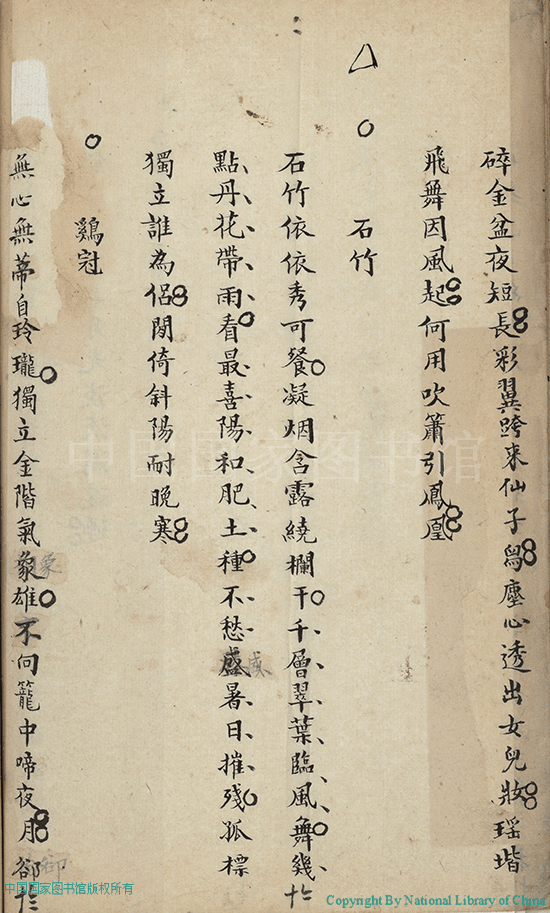 碎金盆夜短長彩翼跨來仙子舄塵心透出女兒妝瑶堦
飛舞因風起何用吹簫引鳳凰
石竹
石竹依依秀可餐凝烟含露繞欄干千層翠葉臨風舞幾
點丹花帶雨看最喜陽和肥土種不愁盛暑日摧殘孤標
獨立誰為侶閒倚斜陽耐晚寒
鷄冠
無心無蒂自玲瓏獨立金階氣象雄不向籠中啼夜月郤
中国国家图书馆
中国国家图书馆版权所有
Copyright By National Library of China